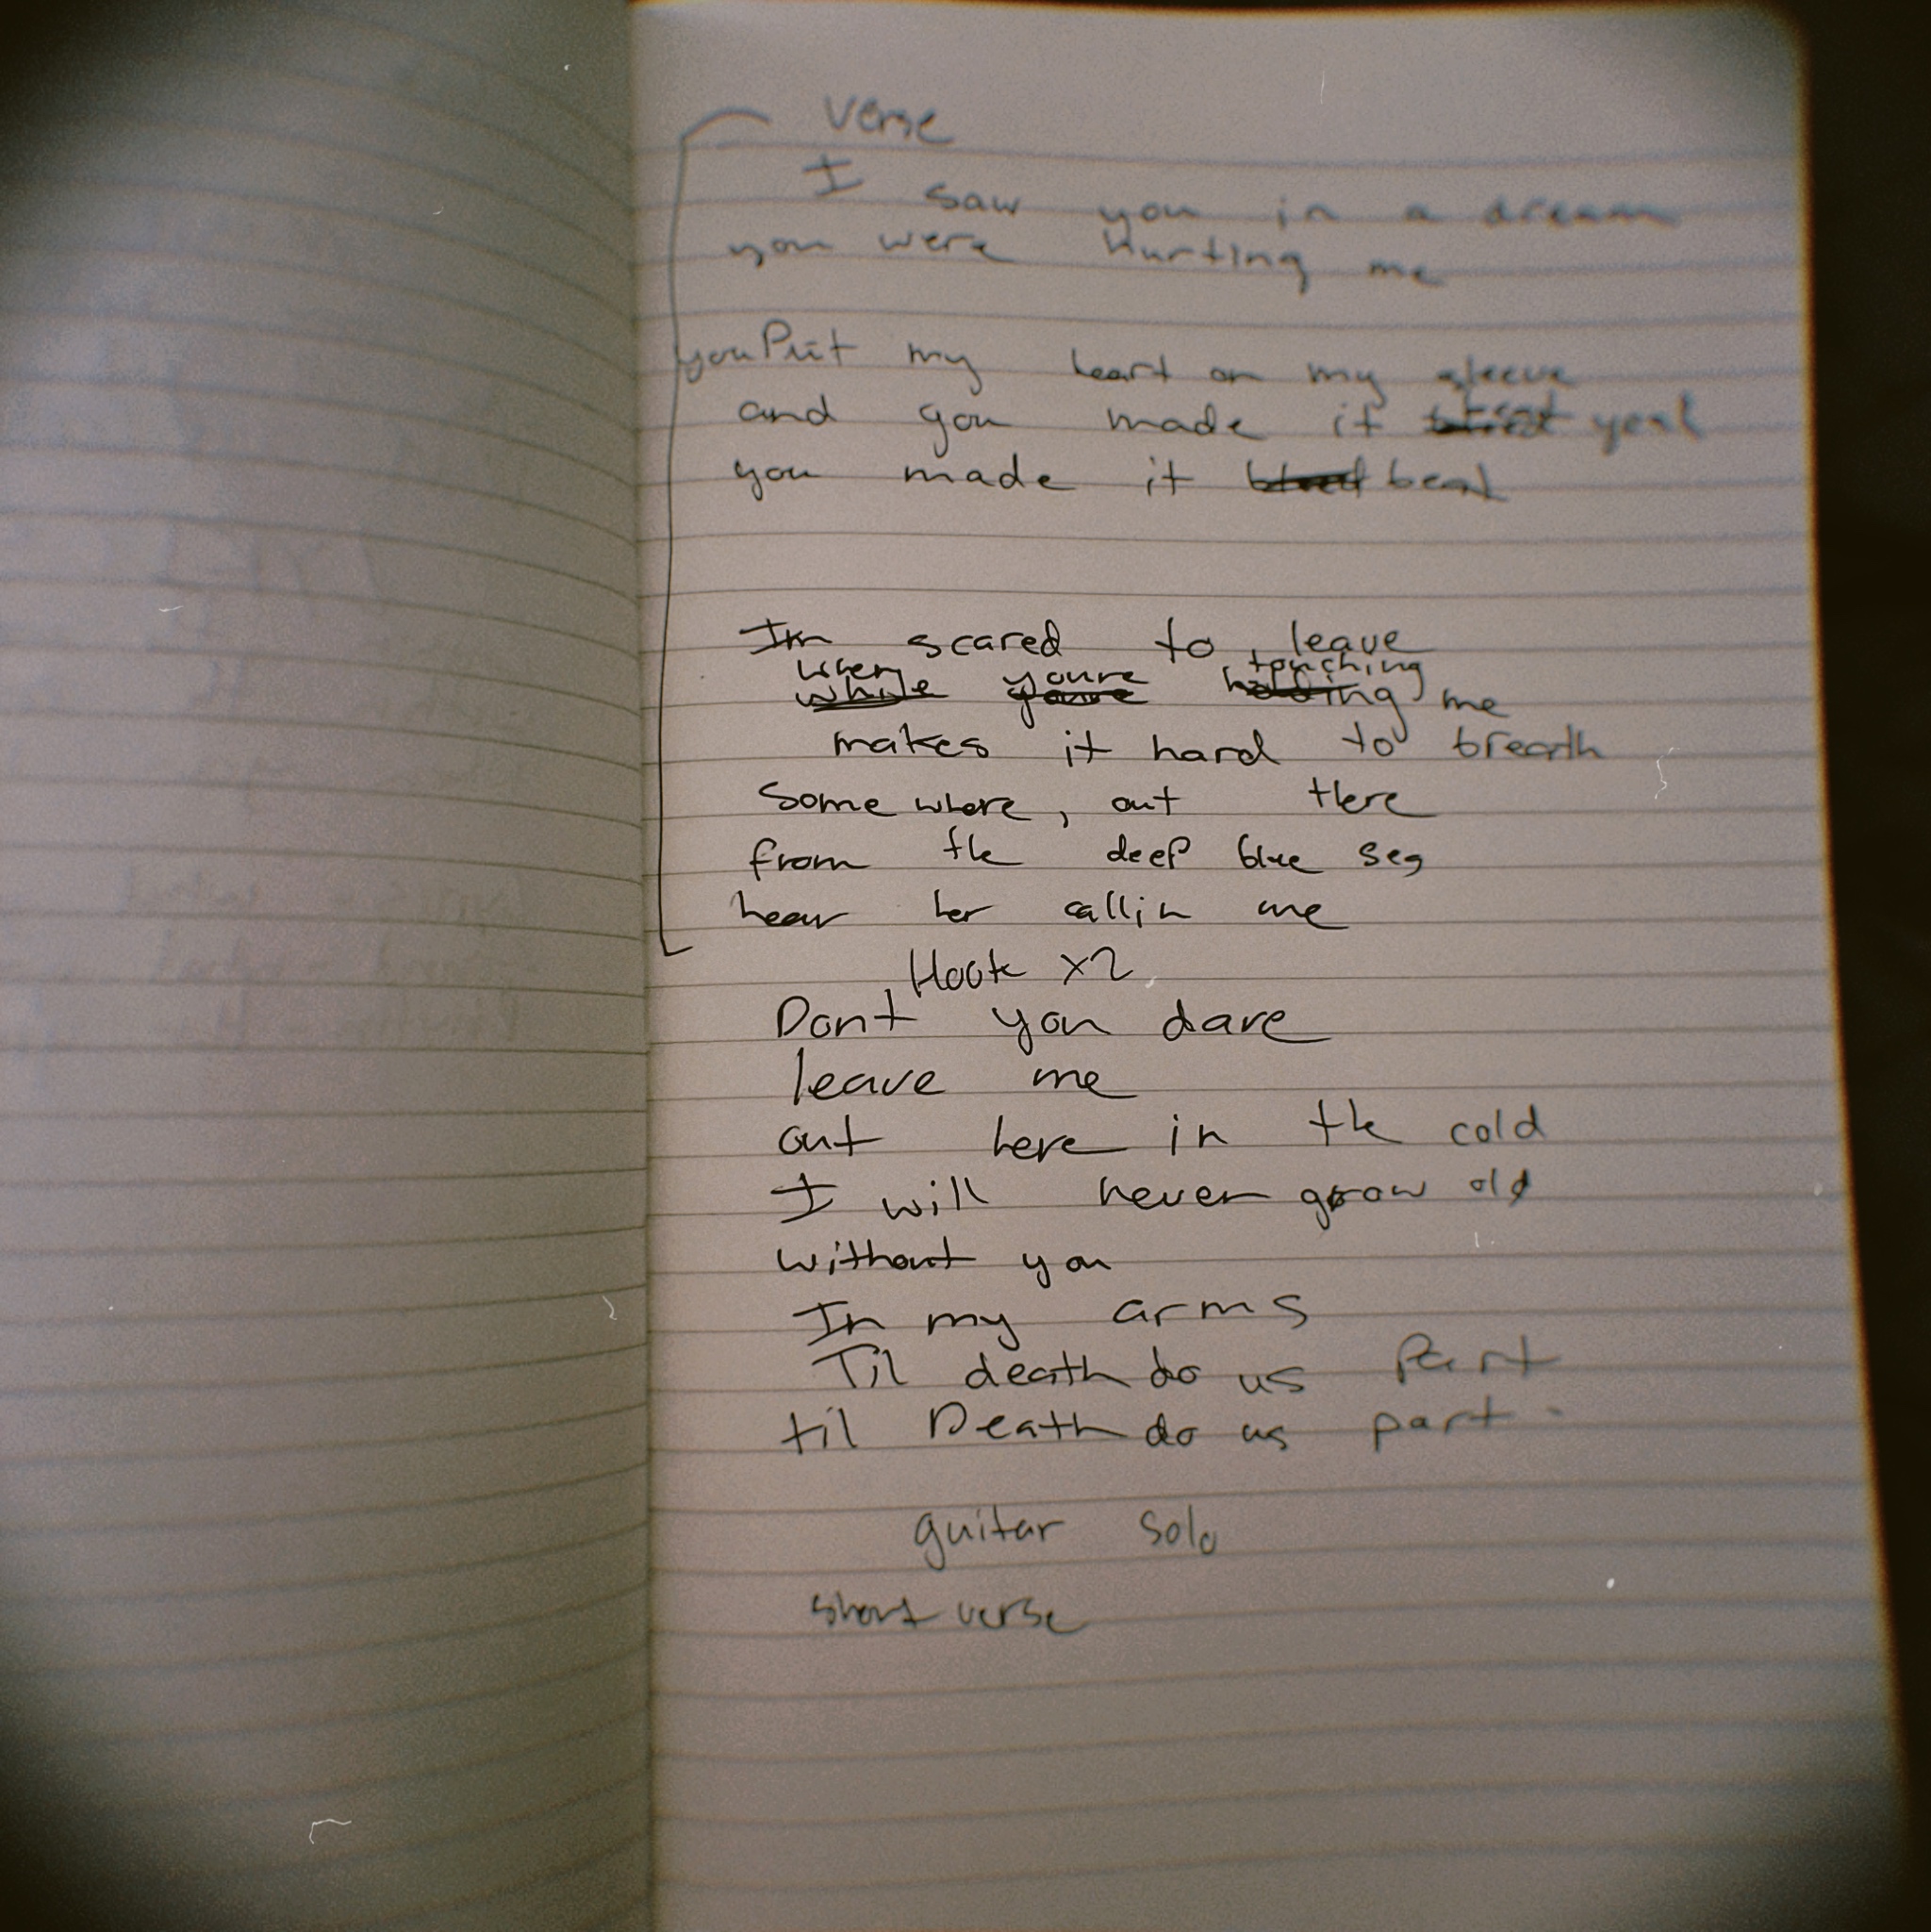 Verse
I saw you in a dream
you were hurting me
you Put my heart on my sleeve
and you made it yeah
you made it beat
Im scared to leave
when youre touching
while youre holding me
makes it hard to breath
Some where, out there
from the deep blue sea
hear her callin me
Hook x2
Dont you dare
leave me
out here in the cold
I will never grow old
without you
In my arms
Til death do us Part
til Death do us part
guitar solo
short verse